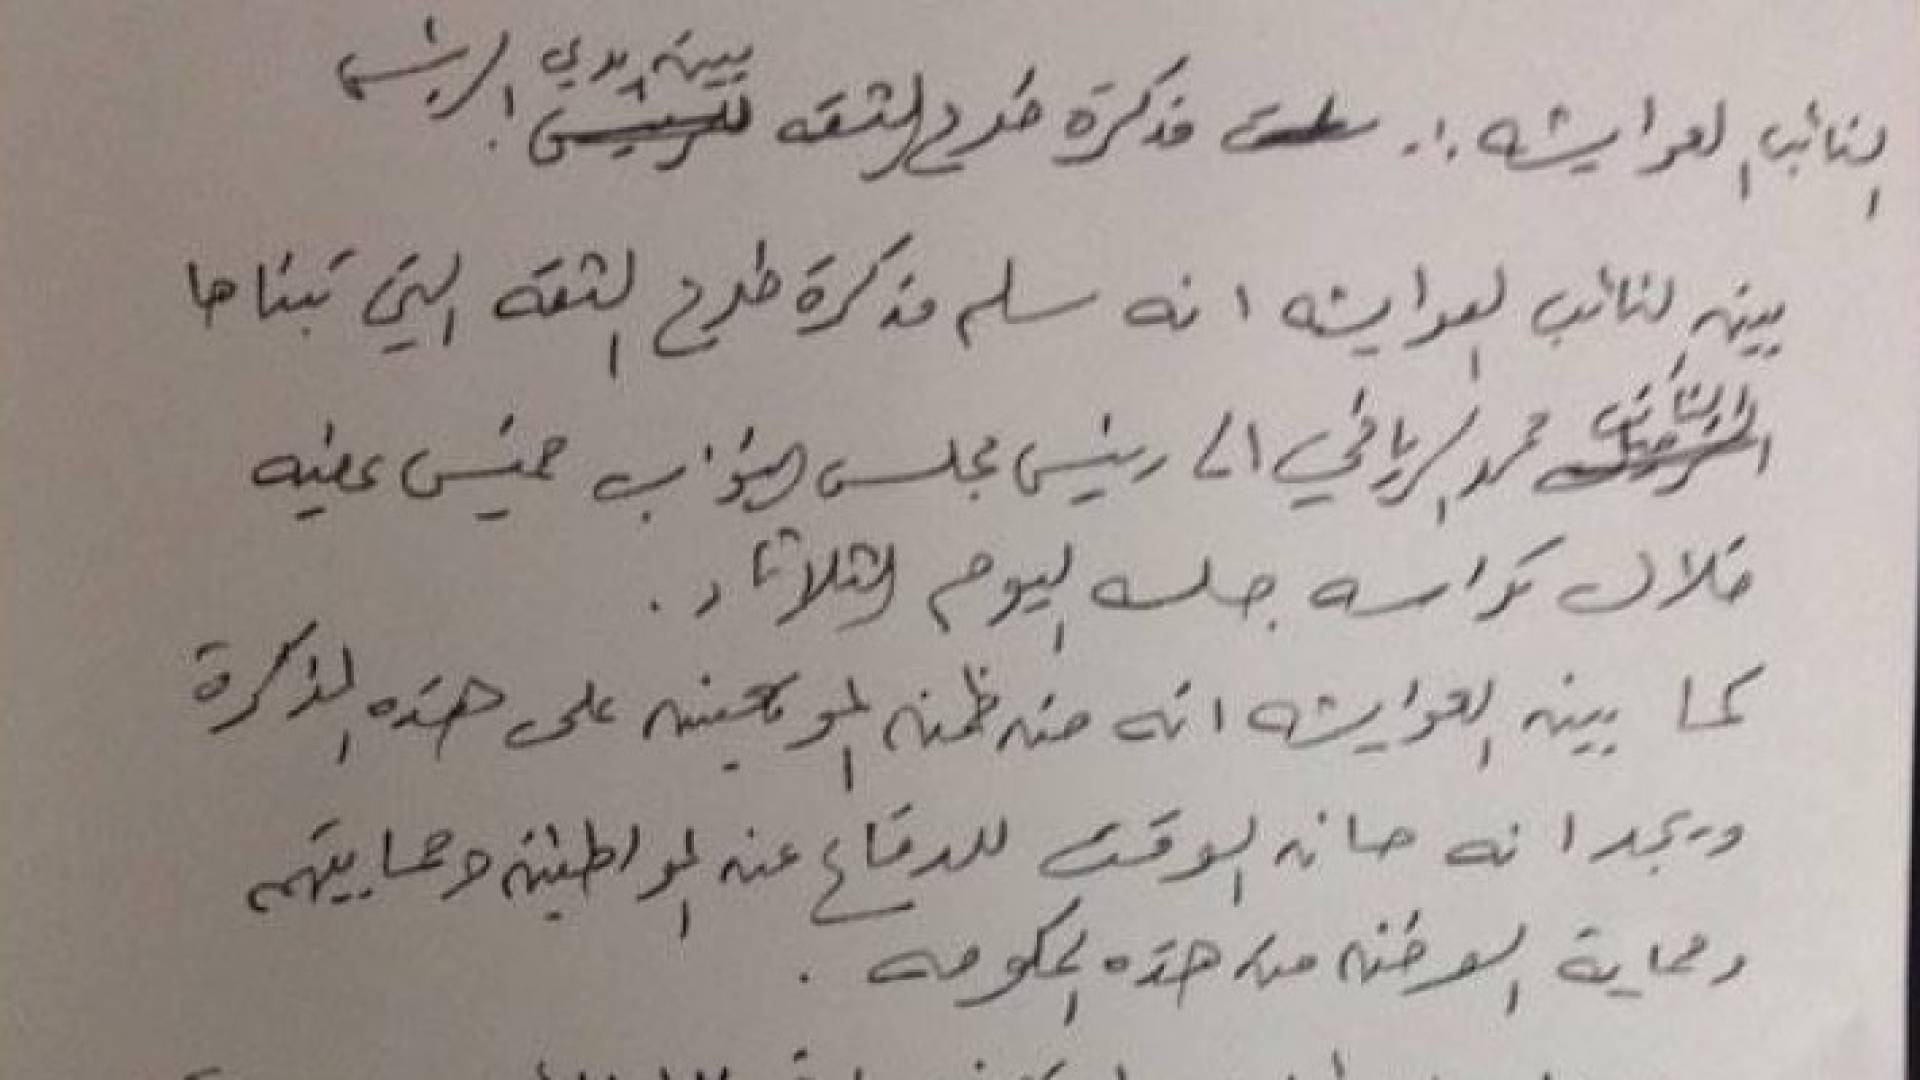 النائب العوايشه :. مذكرة طرح الثقه بين ايدي الرئيس
بين النائب العوايشه انه سلم مذكرة طرح الثقه التي تبناها
النائب محمد الرياطي الى رئيس مجلس النواب خميس عطيه
خلال تراسه جلسه اليوم الثلاثاء .
كما بين العوايشه انه من ظمن الموقعين على هذه المذكرة
ويجد انه حان الوقت للدفاع عن المواطنين وحمايتهم
وحماية الوطن من هذه الحكومه .